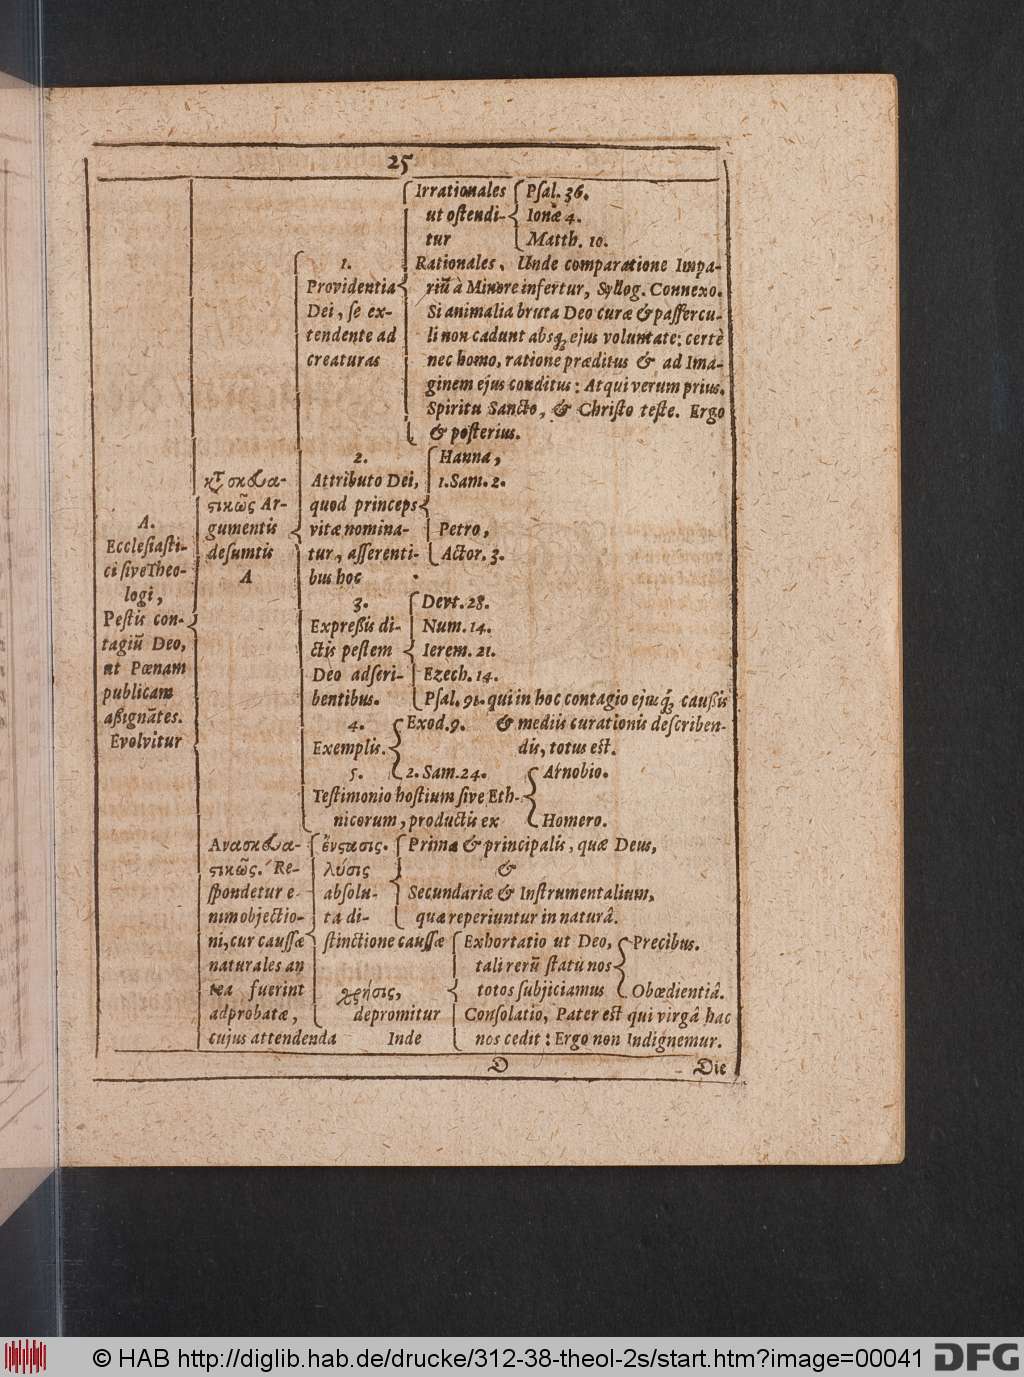 25
A.
Ecclesiasti-
ci sive Theo-
logi,
Pestis con-
tagiũ Deo,
ut Pœnam
publicam
aßignãtes.
Evolvitur
σκευα-
ςικῶς Ar-
gumentis
desumtis
A
1.
Providentia
Dei, se ex-
tendente ad
creaturas
Irrationales
ut ostendi-
tur
Psal. 36.
Ionæ 4.
Matth. 10.
Rationales, Unde comparatione Impa-
riũ à Minore infertur, Syllog. Connexo.
Si animalia bruta Deo curæ & passercu-
li non cadunt absq; ejus voluntate: certè
nec homo, ratione præditus & ad Ima-
ginem ejus conditus: Atqui verum prius,
Spiritu Sancto, & Christo teste. Ergo
& posterius.
2.
Attributo Dei,
quod princeps
vitæ nomina-
tur, asserenti-
bus hoc
Hanna,
1. Sam. 2.
Petro,
Actor. 3.
3.
Expreßis di-
ctis pestem
Deo adscri-
bentibus.
Devt. 28.
Num. 14.
Ierem. 21.
Ezech. 14.
Psal. 91. qui in hoc contagio ejusq; caußis
& mediis curationis describen-
dis, totus est.
4.
Exemplis.
Exod. 9.
2. Sam. 24.
5.
Testimonio hostium sive Eth-
nicorum, productis ex
Arnobio.
Homero.
Ανασκευα-
ςικῶς. Re-
spondetur e-
nim objectio-
ni, cur caussæ
naturales an
tea fuerint
adprobatæ,
cujus attendenda
ἔνςασις.
λύσις
absolu-
ta di-
stinctione caussæ
Prima & principalis, quæ Deus,
&
Secundariæ & Instrumentalium,
quæ reperiuntur in naturâ.
χρῆσις,
depromitur
Inde
Exhortatio ut Deo,
tali rerũ statu nos
totos subjiciamus
Precibus.
Obœdientiâ.
Consolatio, Pater est qui virgâ hac
nos cedit: Ergo non Indignemur.
D
Die
© HAB http://diglib.hab.de/drucke/312-38-theol-2s/start.htm?image=00041
DFG